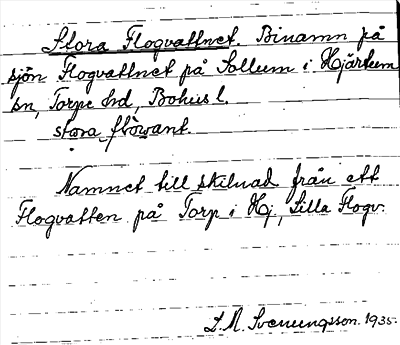 Stora Flogvattnet. Binamn på
sjön Flogvattnet på Sollum i Hjärtum
sn, Torpe hd, Bohusl.
stora flòwant.
Namnet till skilnad från ett
Flogvatten på Torp i Hj, Lilla Flogv.
S. M. Svenungsson. 1935.